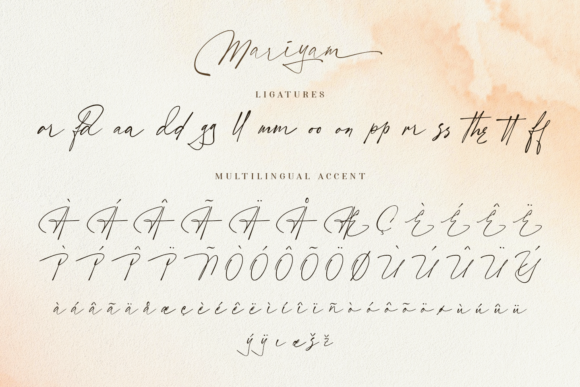 Mariyam
LIGATURES
or fd aa dd gg ll mm oo on pp rr ss the tt ff
MULTILINGUAL ACCENT
À Á Â Ã Ä Å Æ Ç È É Ê Ë
Ì Í Î Ï Ñ Ò Ó Ô Õ Ö Ø Ù Ú Û Ü Ý
à á â ã ä å æ ç è é ê ë ì í î ï ñ ò ó ô õ ö ø ù ú û ü
ý ÿ ı œ š ž